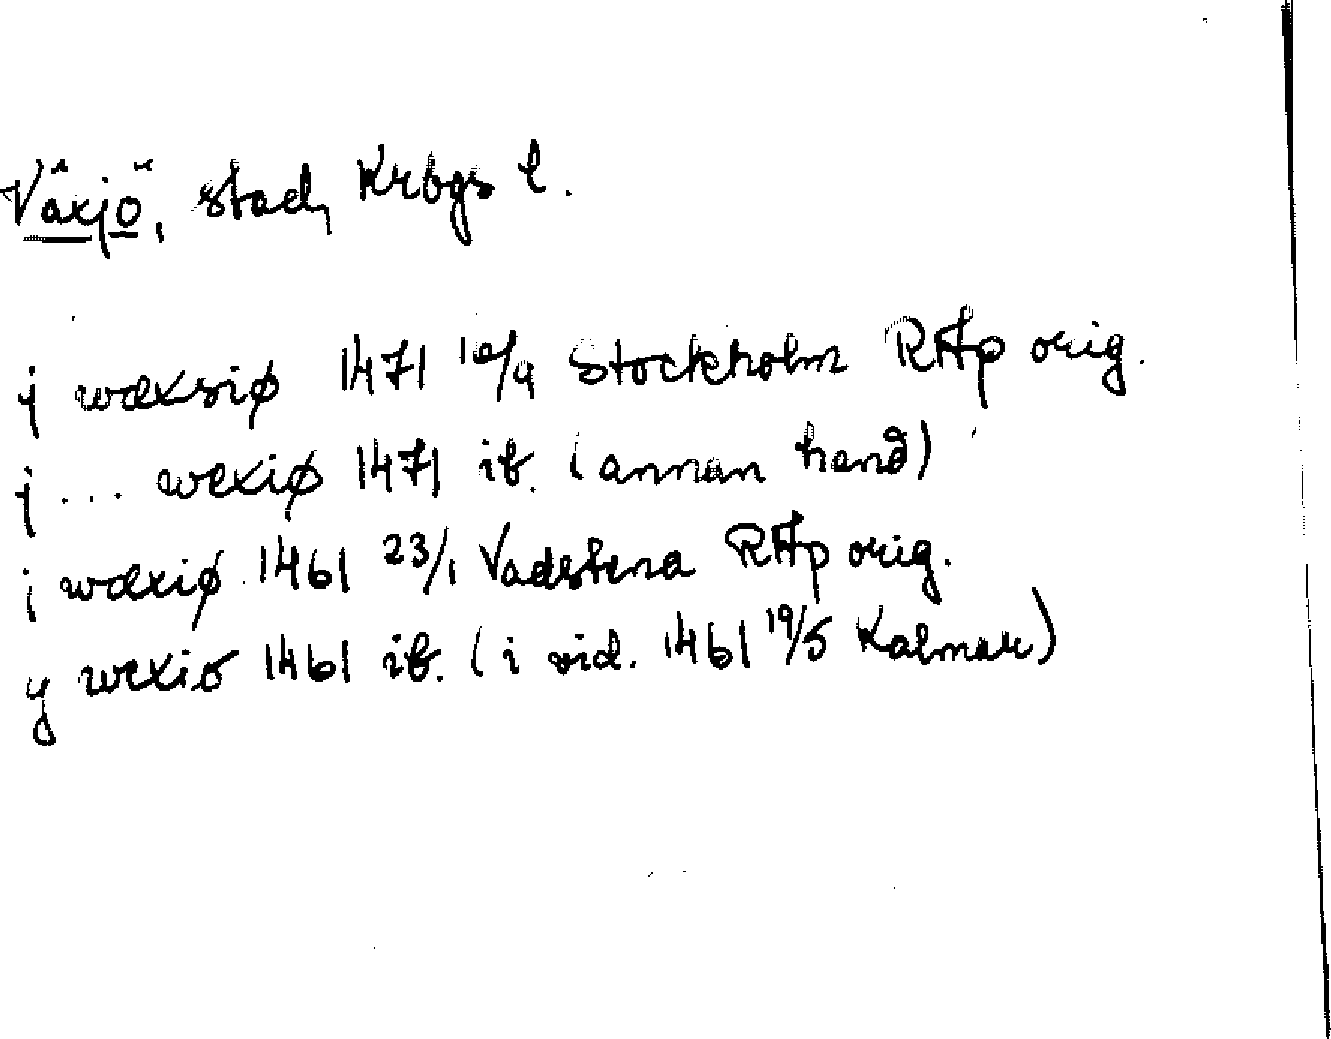 Växjö, stad, Krbgs l.
j wæxsiø 1471 10/9 Stockholm RAp orig.
j ... wexiø 1471 ib. (annan hand)
j wæxiø 1461 23/1 Vadstena RAp orig.
y wexio 1461 ib. (i vid. 1461 19/5 Kalmar)